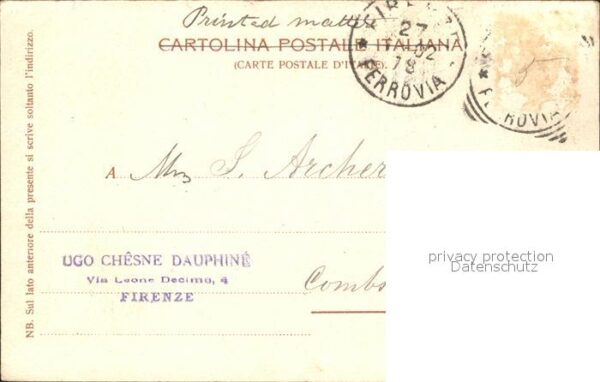 Printed matter
CARTOLINA POSTALE ITALIANA
(CARTE POSTALE D'ITALIE)
FIRENZE
27
02
18
* FERROVIA *
5
FERROVIA
NB. Sul lato anteriore della presente si scrive soltanto l'indirizzo.
A Mrs S. Archer
privacy protection
Datenschutz
UGO CHÊSNE DAUPHINÉ
Via Leone Decimo, 4
FIRENZE
Combs